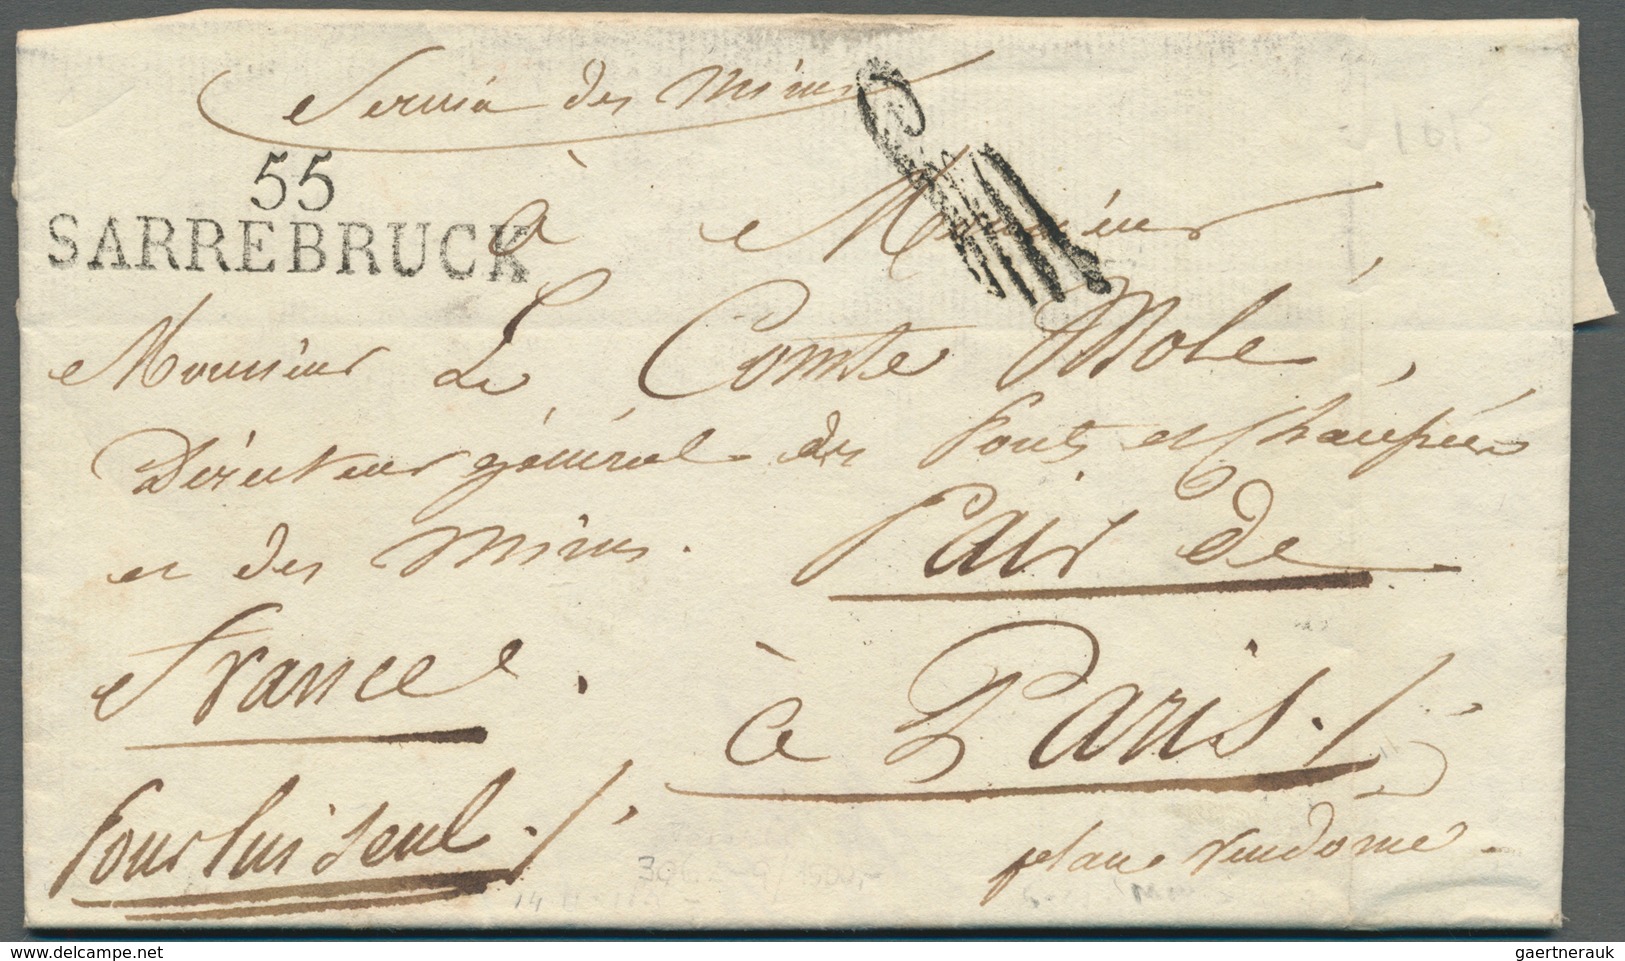 Service des Mines
55
SARREBRUCK
à Monsieur
Monsieur Le Comte Molé,
Directeur général des Ponts et Chaussées
et des Mines. Pair de
France. à Paris./.
Pour lui seul./.
place vendome
gaertnerauk